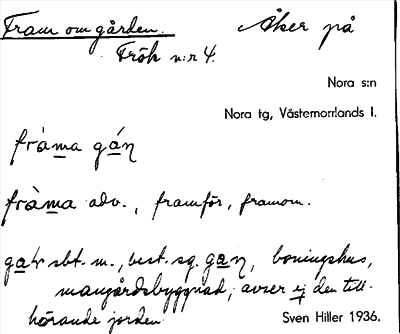 Fram om gården. Åker på
Frök n:r 4.
Nora s:n
Nora tg, Västernorrlands l.
fràma gáŋ
fràma adv., framför, framom.
gaɽ sbt. m., best. sg. gaŋ, boningshus,
mangårdsbyggnad; avser ej den till-
hörande jorden.
Sven Hiller 1936.